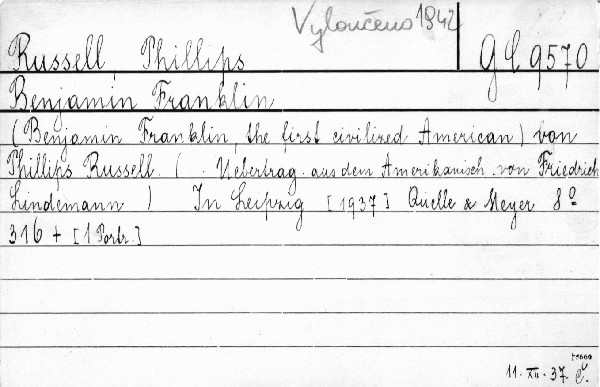 Vyloučeno 1942
Russell, Phillips
G C 9570
Benjamin Franklin
(Benjamin Franklin, the first civilized American) von
Phillips Russell. ( . Uebertrag. aus dem Amerikanisch. von Friedrich
Lindemann ) In Leipzig [1937] Quelle & Meyer 8º
316 + [1 Portr.]
11. XII. 37. Č.